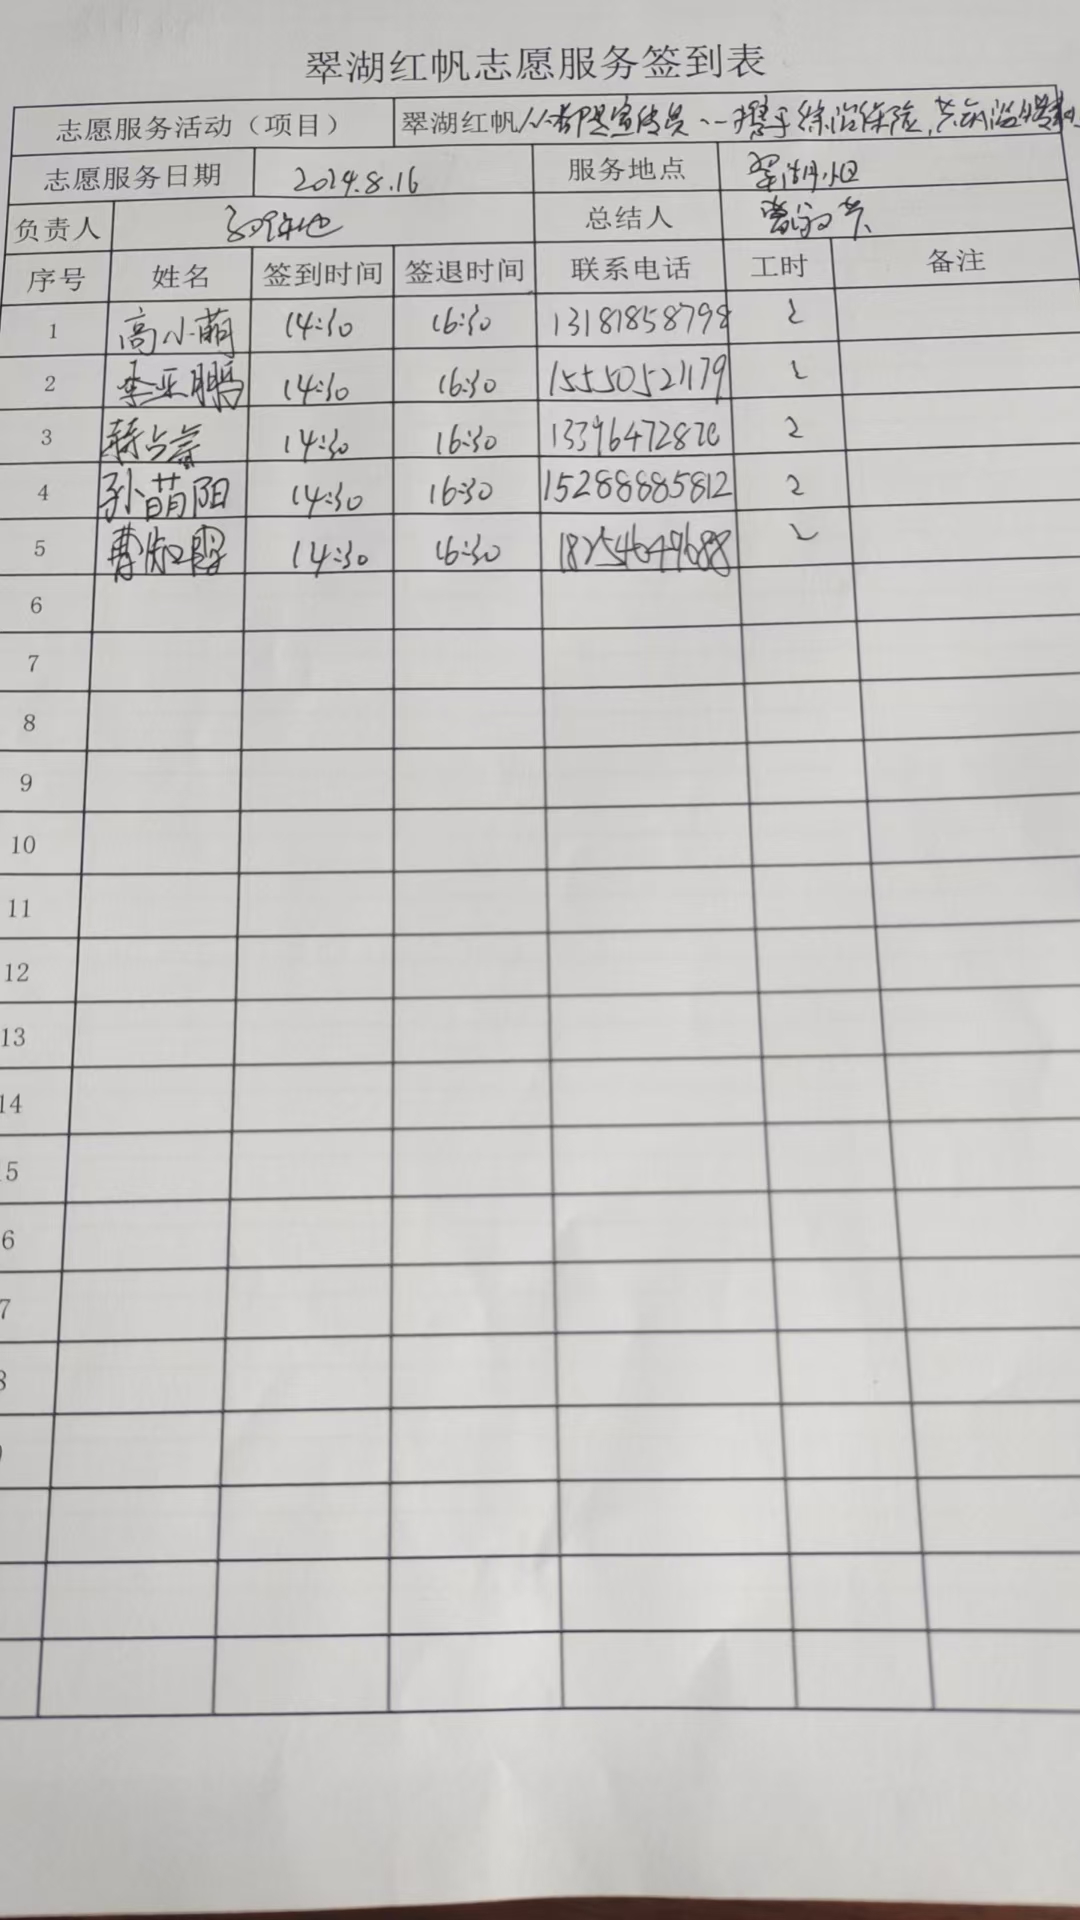 翠湖红帆志愿服务签到表
志愿服务活动（项目） 翠湖红帆人人都是宣传员、携手综治保险，共筑
志愿服务日期 2024.8.16 服务地点 翠湖小区
负责人 总结人
序号 姓名 签到时间 签退时间 联系电话 工时 备注
1 高小萌 14:30 16:30 13181858798 2
2 李亚鹏 14:30 16:30 15550521179 2
3 14:30 16:30 2
4 孙苗阳 14:30 16:30 15288885812 2
5 曹 14:30 16:30 18254649688 2
6
7
8
9
10
11
12
13
14
5
6
7
8